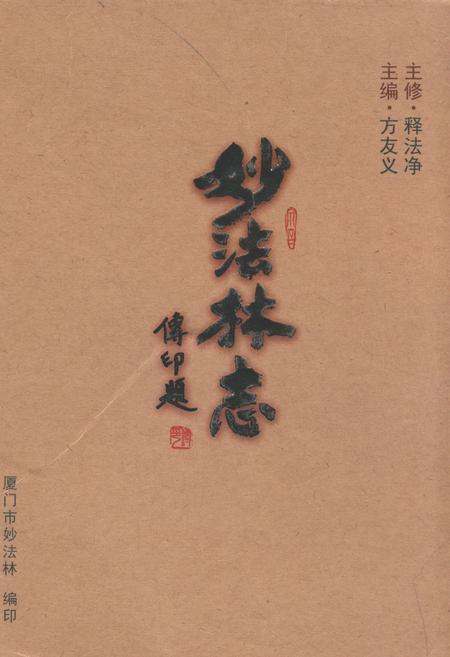 主修·释法净
主编·方友义
妙法林志
傳印題
厦门市妙法林 编印